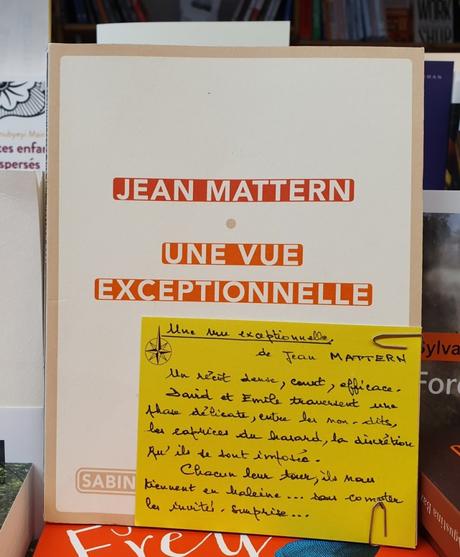 WORK
SHOP
ubyeyi Mair
tes enfan
spersés
MAN
JEAN MATTERN
UNE VUE
EXCEPTIONNELLE
SABIN
Une vue exceptionnelle.
de Jean MATTERN
Un récit dense, court, efficace.
David et Emile traversent une
phase délicate, entre les non-dits,
les caprices du hasard, la discrétion
qu'ils se sont imposée.
Chacun leur tour, ils nous
tiennent en haleine... sans compter
les invités-surprise...
Sylva
Forê
Frey